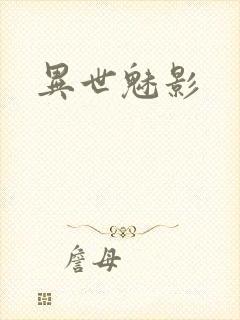 異世魅影
詹母